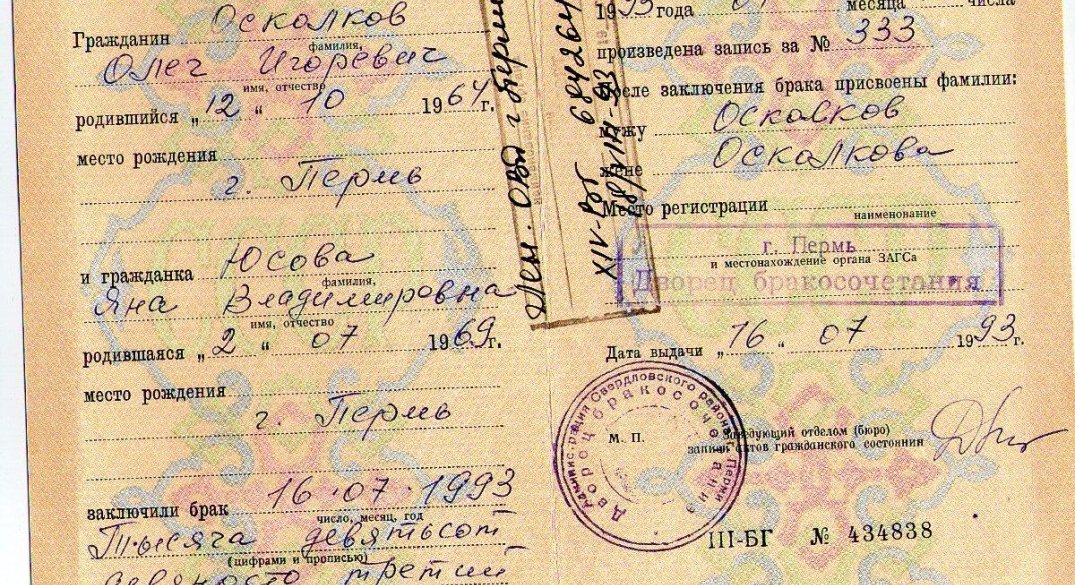 Осколков
Гражданин
фамилия,
Олег Игоревич
имя, отчество
родившийся „ 12 “ 10 1964 г.
место рождения
г. Пермь
и гражданка Юсова
фамилия,
Яна Владимировна
имя, отчество
родившаяся „ 2 “ 07 1969 г.
место рождения
г. Пермь
заключили брак 16.07.1993
число, месяц, год
Тысяча девятьсот
(цифрами и прописью)
девяносто третий
1993 года 07 месяца числа
произведена запись за № 333
После заключения брака присвоены фамилии:
мужу Осколков
жене Осколкова
Место регистрации
наименование
г. Пермь
и местонахождение органа ЗАГСа
Дворец бракосочетания
Дата выдачи „ 16 “ 07 1993 г.
М. П.
Заведующий отделом (бюро)
записи актов гражданского состояния
Администрация Свердловского района г. Перми
Дворец бракосочетания
III-БГ № 434838
XIV-ВГ